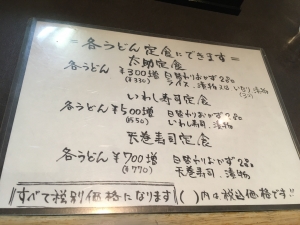 = 各うどん定食にできます =
太助定食
各うどん ¥300増 日替わりおかず2品
(¥330) ライス、漬物
いわし寿司定食
各うどん ¥500増 日替わりおかず2品
(550) いわし寿司、漬物
天巻寿司定食
各うどん ¥700増 日替わりおかず2品
(¥770) 天巻寿司、漬物
すべて税別価格になります ( )内は税込価格です!!